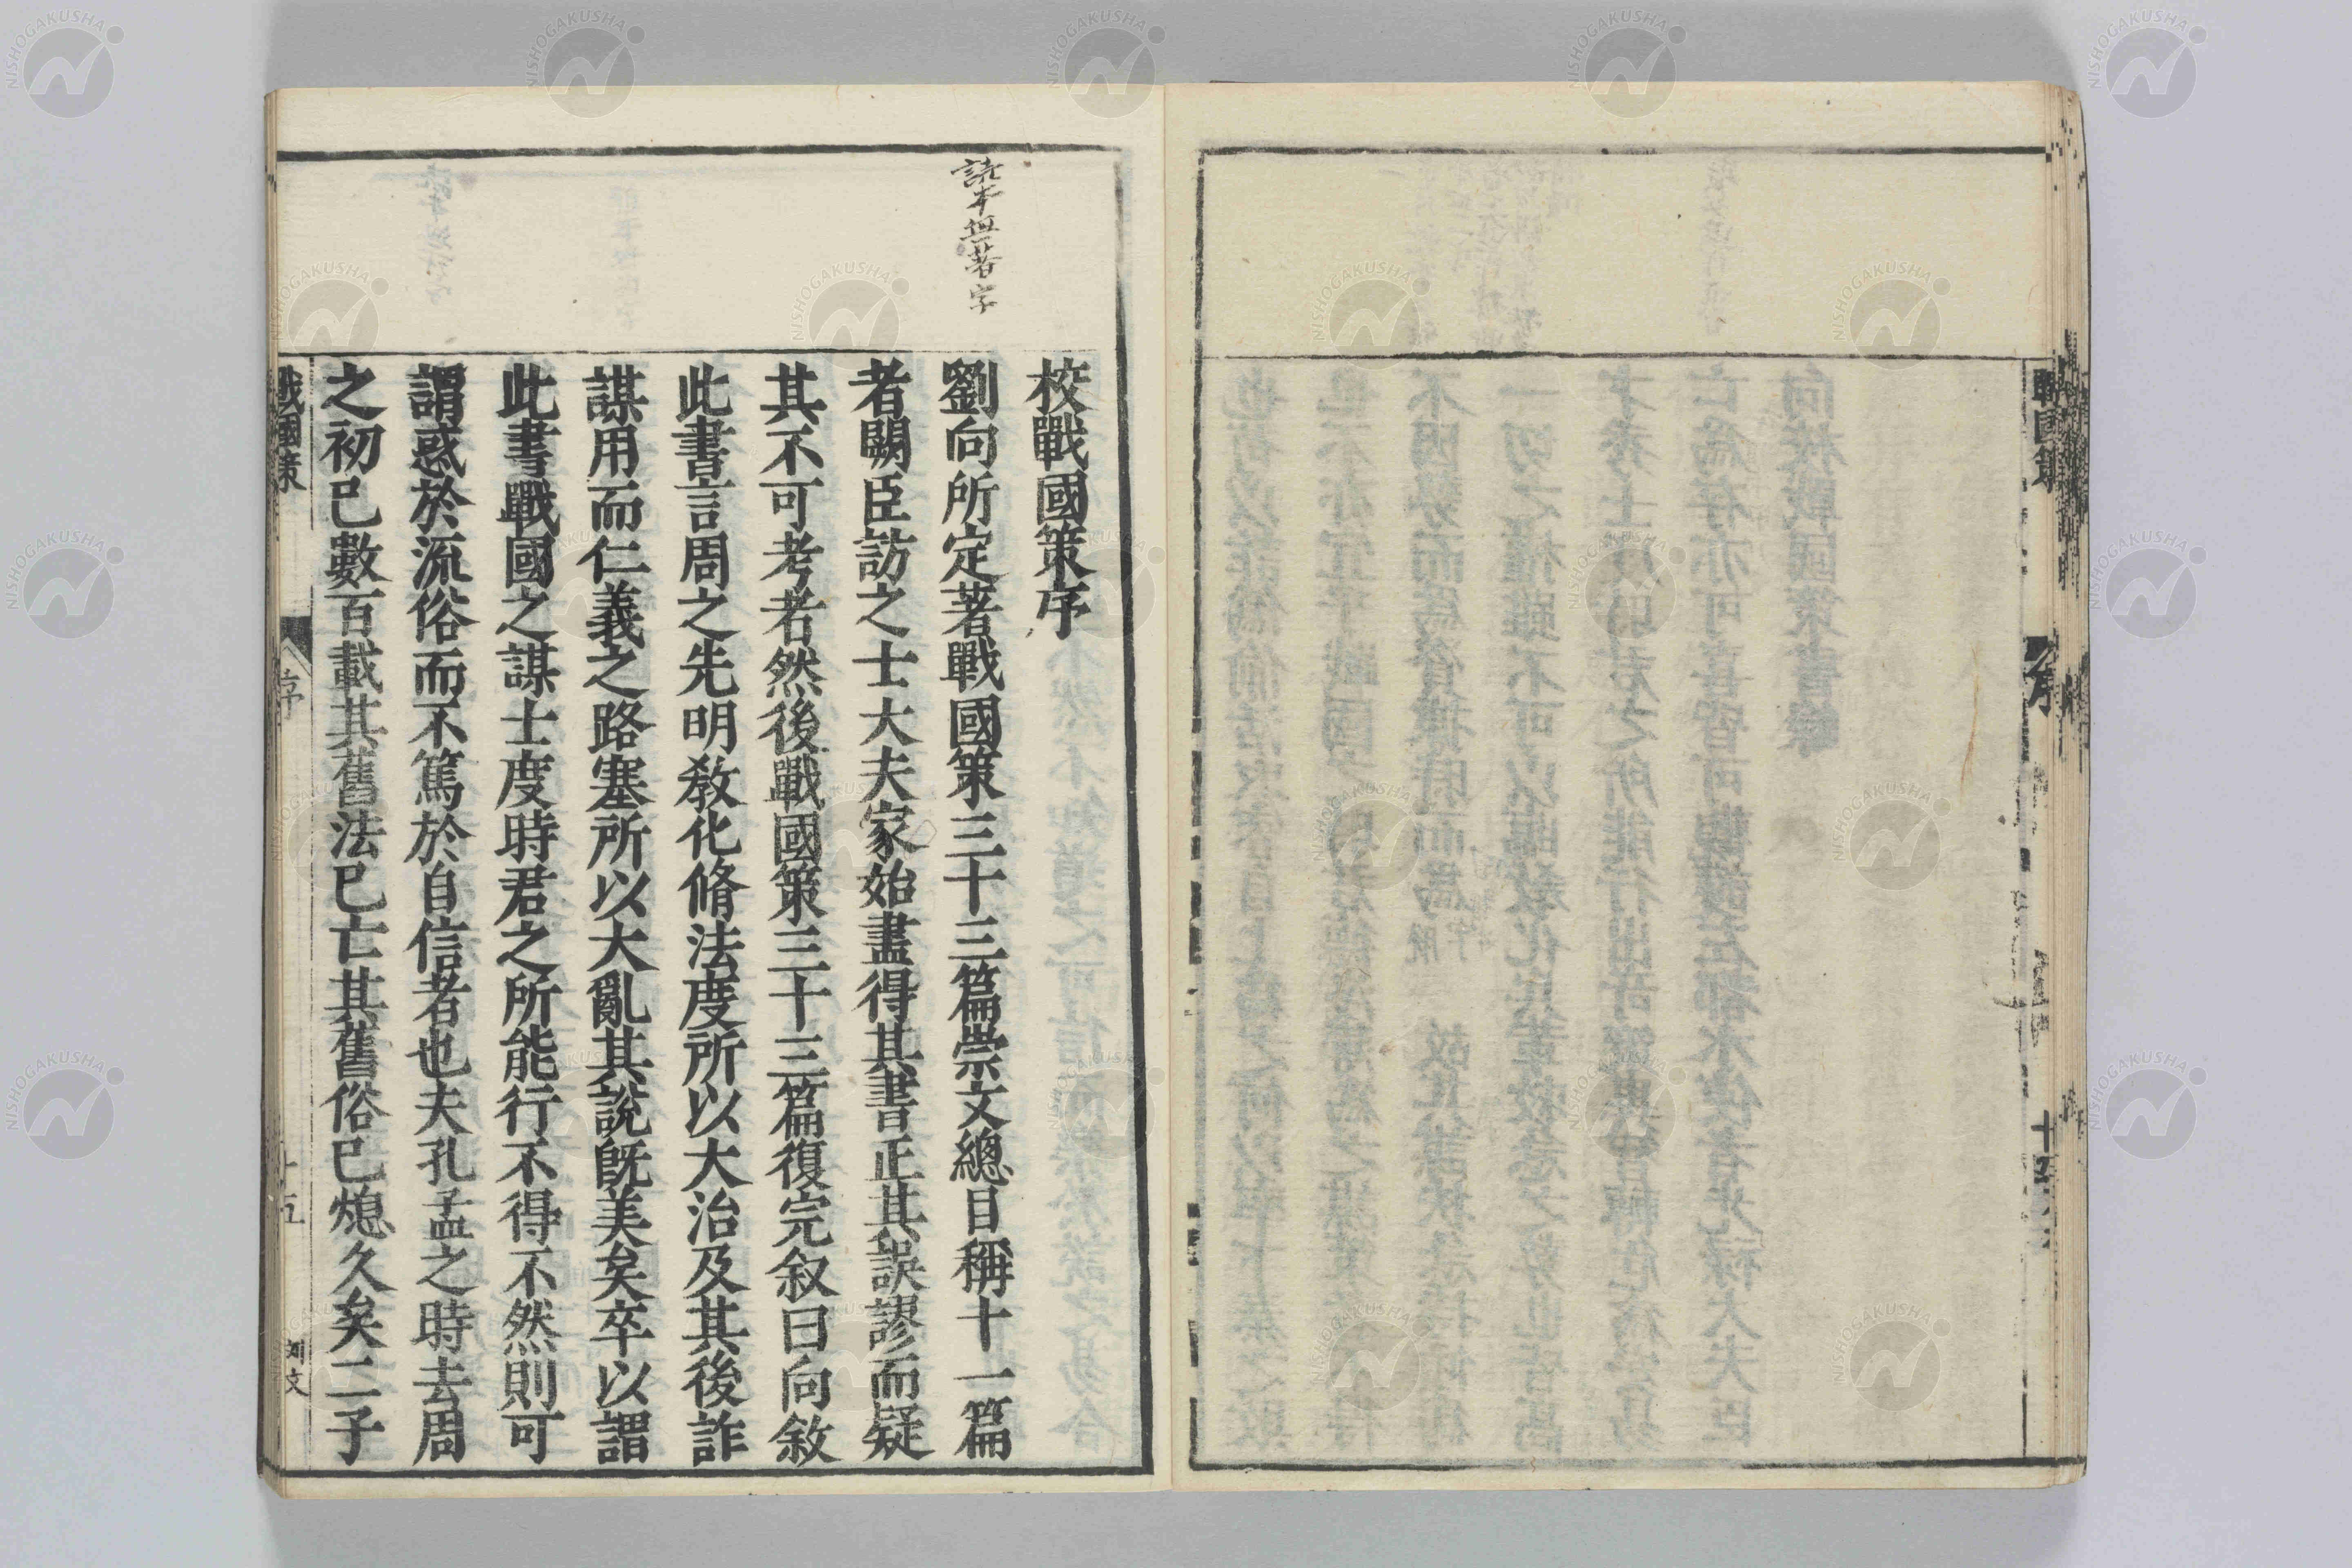 戰國策
序
讀本無著字
校戰國策序
劉向所定著戰國策三十三篇崇文總目稱十一篇
者闕臣訪之士大夫家始盡得其書正其誤謬而疑
其不可考者然後戰國策三十三篇復完叙曰向敘
此書言周之先明敎化脩法度所以大治及其後詐
謀用而仁義之路塞所以大亂其說旣美矣卒以謂
此書戰國之謀士度時君之所能行不得不然則可
謂惑於流俗而不篤於自信者也夫孔孟之時去周
之初已數百載其舊法已亡其舊俗已熄久矣二子
戰國策
序
十五
刘文
NISHOGAKUSHA